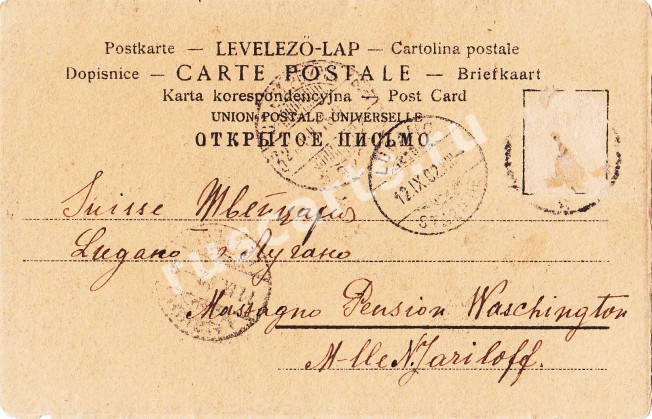 Postkarte — LEVELEZŐ-LAP — Cartolina postale
Dopisnice — CARTE POSTALE — Briefkaart
Karta korespondencyjna — Post Card
UNION POSTALE UNIVERSELLE
ОТКРЫТОЕ ПИСЬМО.
12.IX.02
Suisse Швейцария
Lugano г. Лугано
Massagno Pension Waschington
M-lle N. Jariloff.
ruscarts.ru